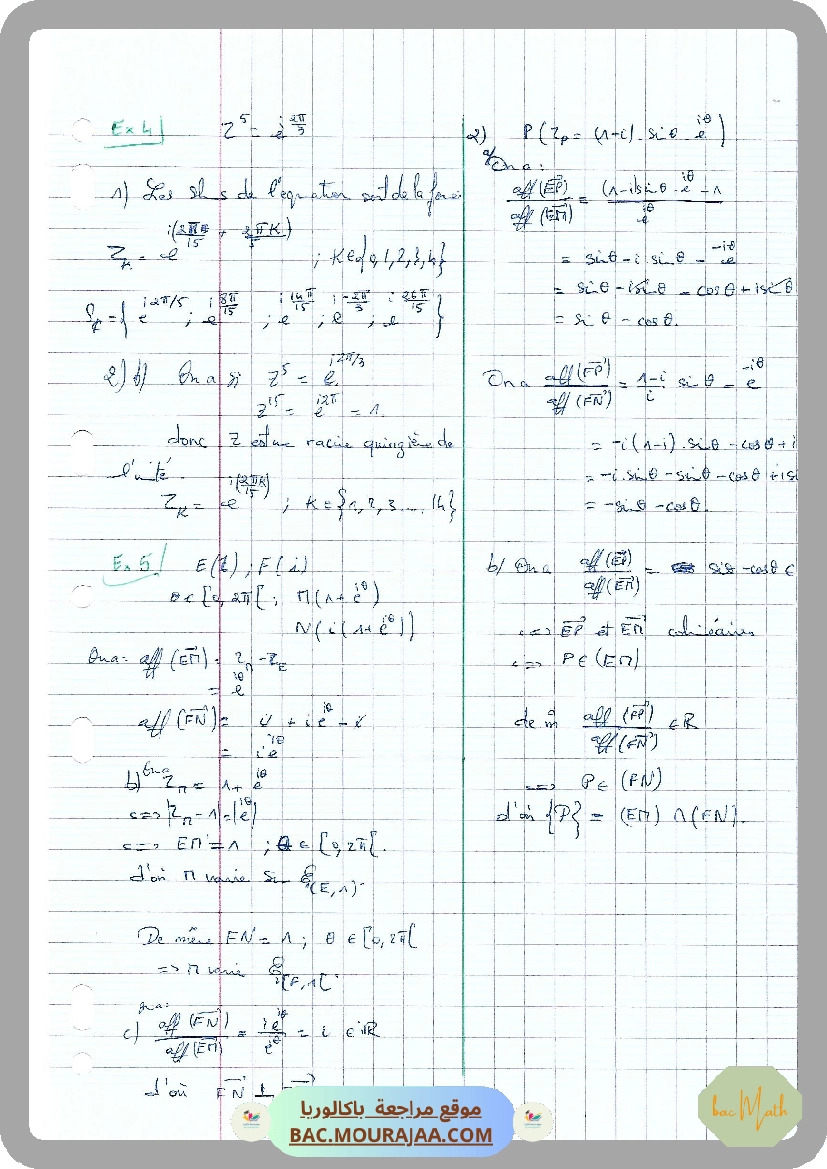 Ex 4
Z^5 = e^{i 2π/3}
1) Les sol^s de l'equation sont de la forme
Z_k = e^{i(2π/15 + 2πK/5)} ; K∈{0,1,2,3,4}
= { e^{i2π/5} ; e^{i8π/15} ; e^{i14π/15} ; e^{i-2π/3} ; e^{i26π/15} }
2) b) On a si Z^5 = e^{i2π/3}
Z^15 = e^{i2π} = 1.
donc Z est une racine quinzième de
l'unité.
Z_k = e^{i(2πK/15)} ; K = {1,2,3....14}
Ex 5 E(1) ; F(i)
θ ∈ [0, 2π[ ; M(1+e^{iθ})
N(i(1+e^{iθ}))
On a: aff(EM) = Z_M - Z_E
= e^{iθ}
aff(FN) = i + ie^{iθ} - i
= ie^{iθ}
b) On a Z_M = 1 + e^{iθ}
<=> |Z_M - 1| = |e^{iθ}|
<=> EM = 1 ; θ ∈ [0, 2π[.
d'où M varie sur ζ(E,1).
De même FN = 1 ; θ ∈ [0, 2π[
=> M varie ζ[F,1[.
On a:
c) aff(FN)/aff(EM) = ie^{iθ}/e^{iθ} = i ∈ iR
d'où FN ⊥
2) P(Z_P = (1-i).sinθ.e^{iθ})
a/ On a:
aff(EP)/aff(EM) = ((1-i)sinθ.e^{iθ} - 1)/e^{iθ}
= sinθ - i.sinθ - e^{-iθ}
= sinθ - isinθ - cosθ + isinθ
= sinθ - cosθ.
On a aff(FP)/aff(FN) = (1-i)/i sinθ - e^{-iθ}
= -i(1-i).sinθ - cosθ + i
= -i.sinθ - sinθ - cosθ + isi
= -sinθ - cosθ.
b/ On a aff(EP)/aff(EM) = sinθ - cosθ ∈
<=> EP et EM colinéaires
<=> P∈(EM)
de m̂ aff(FP)/aff(FN) ∈ R
<=> P∈(FN)
d'où {P} = (EM) ∩ (FN).
موقع مراجعة باكالوريا
BAC.MOURAJAA.COM
bac Math